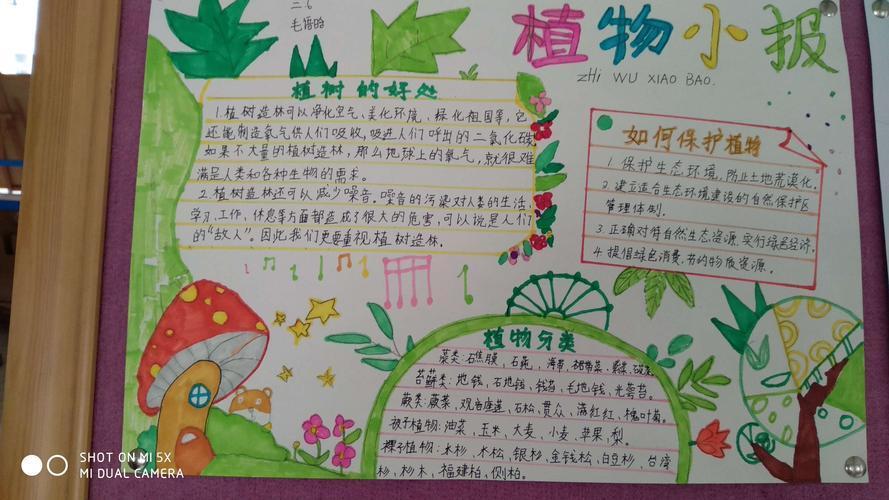 二.6
毛语晗
植物小报
zHi WU XIAO BAO.
植树的好处
1.植树造林可以净化空气、美化环境、绿化祖国等,它
还能制造氧气供人们吸收,吸进人们呼出的二氧化碳
如果不大量的植树造林,那么地球上的氧气,就很难
满足人类和各种生物的需求。
2.植树造林还可以减少噪音。噪音的污染对人类的生活、
学习、工作、休息等方面都造成了很大的危害,可以说是人们
的“敌人”。因此我们更要重视植树造林。
如何保护植物
1.保护生态环境,防止土地荒漠化.
2.建立适合生态环境建设的自然保护区
管理体制.
3.正确对待自然生态资源,实行绿色经济.
4.提倡绿色消费,节约物质资源.
植物分类
藻类:石莼、海带、紫菜
苔藓类:地钱、石地钱、钱苔、毛地钱、光萼苔。
蕨类:蕨菜、观音座莲、石松、贯众、满红红、槐叶萍。
被子植物:油菜、玉米、大麦、小麦、苹果、梨。
裸子植物:水杉、水松、银杉、金钱松、白豆杉、台湾
杉、杉木、福建柏、侧柏。
SHOT ON MI 5X
MI DUAL CAMERA